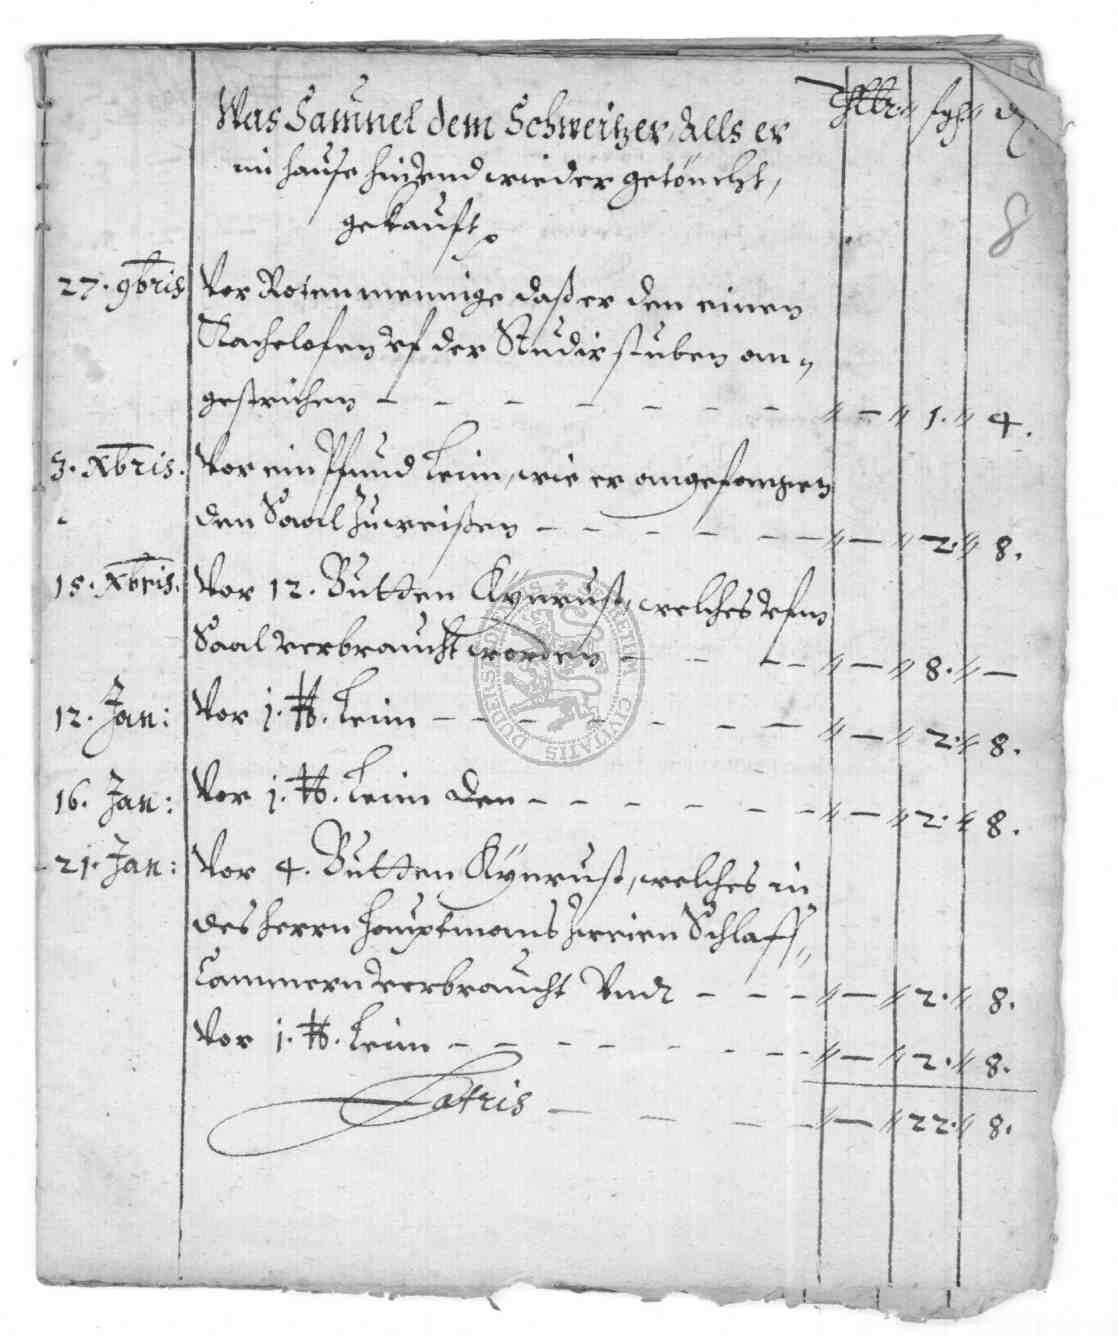 Thlr. // sgl // ₰
8
Was Samuel dem Schweitzer, Alls er
im hause hin vnd wieder getünchht,
gekaufft.
27. 9bris Vor Roten mennige daß er den einen
Kachelofen vf der Studir stuben an„
gestrichen – – – – – – – // – // 1. // 4.
3. Xbris. Vor ein Pfund Leim, wie er angefangen
den Saal Zu weißen – – – – – – // – // 2. // 8.
15. Xbris. Vor 12. Butten Kÿnruß, welches vfm
Saal verbraucht worden – – – – – // – // 8. // –
12. Jan: Vor 1. ℔. Leim – – – – – – – // – // 2. // 8.
16. Jan: Vor 1. ℔. Leim den – – – – – – // – // 2. // 8.
21. Jan: Vor 4. Butten Kÿnruß, welches in
des herrn hauptmans zweien Schlaff„
Cammern verbraucht Vnd – – – // – // 2. // 8.
Vor 1. ℔. Leim – – – – – – – – // – // 2. // 8.
Latris – – – – // – // 22. // 8.
CIVITATIS DUDERSTADENSIS